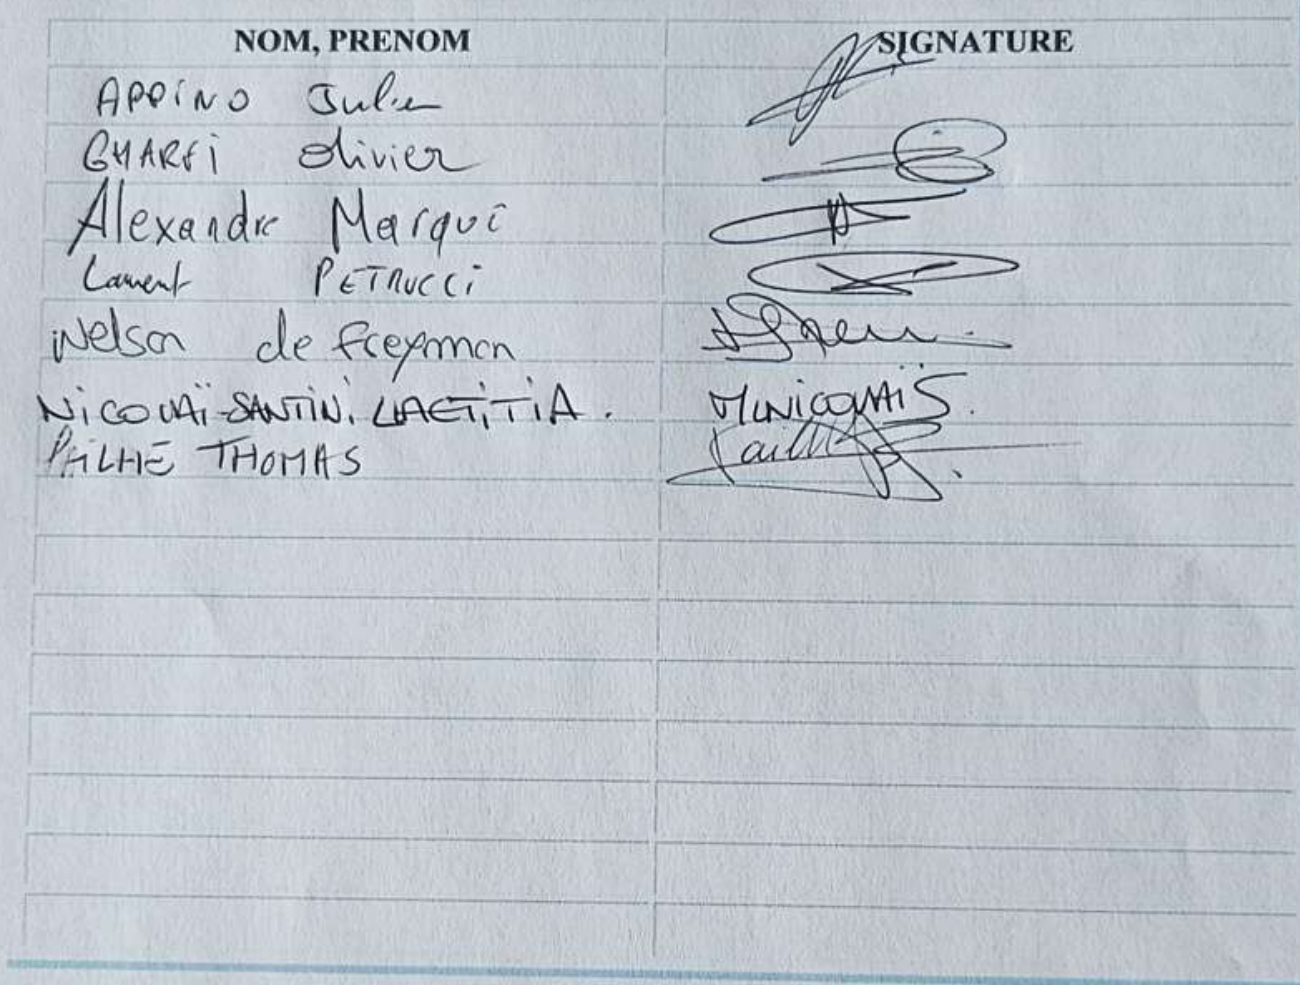 NOM, PRENOM SIGNATURE
APPINO Julie
GHARFI Olivier
Alexandre Marqui
Laurent PETRUCCI
Nelson de Freyman
NICOLAÏ-SANTINI LAETITIA.
PAILHÉ THOMAS